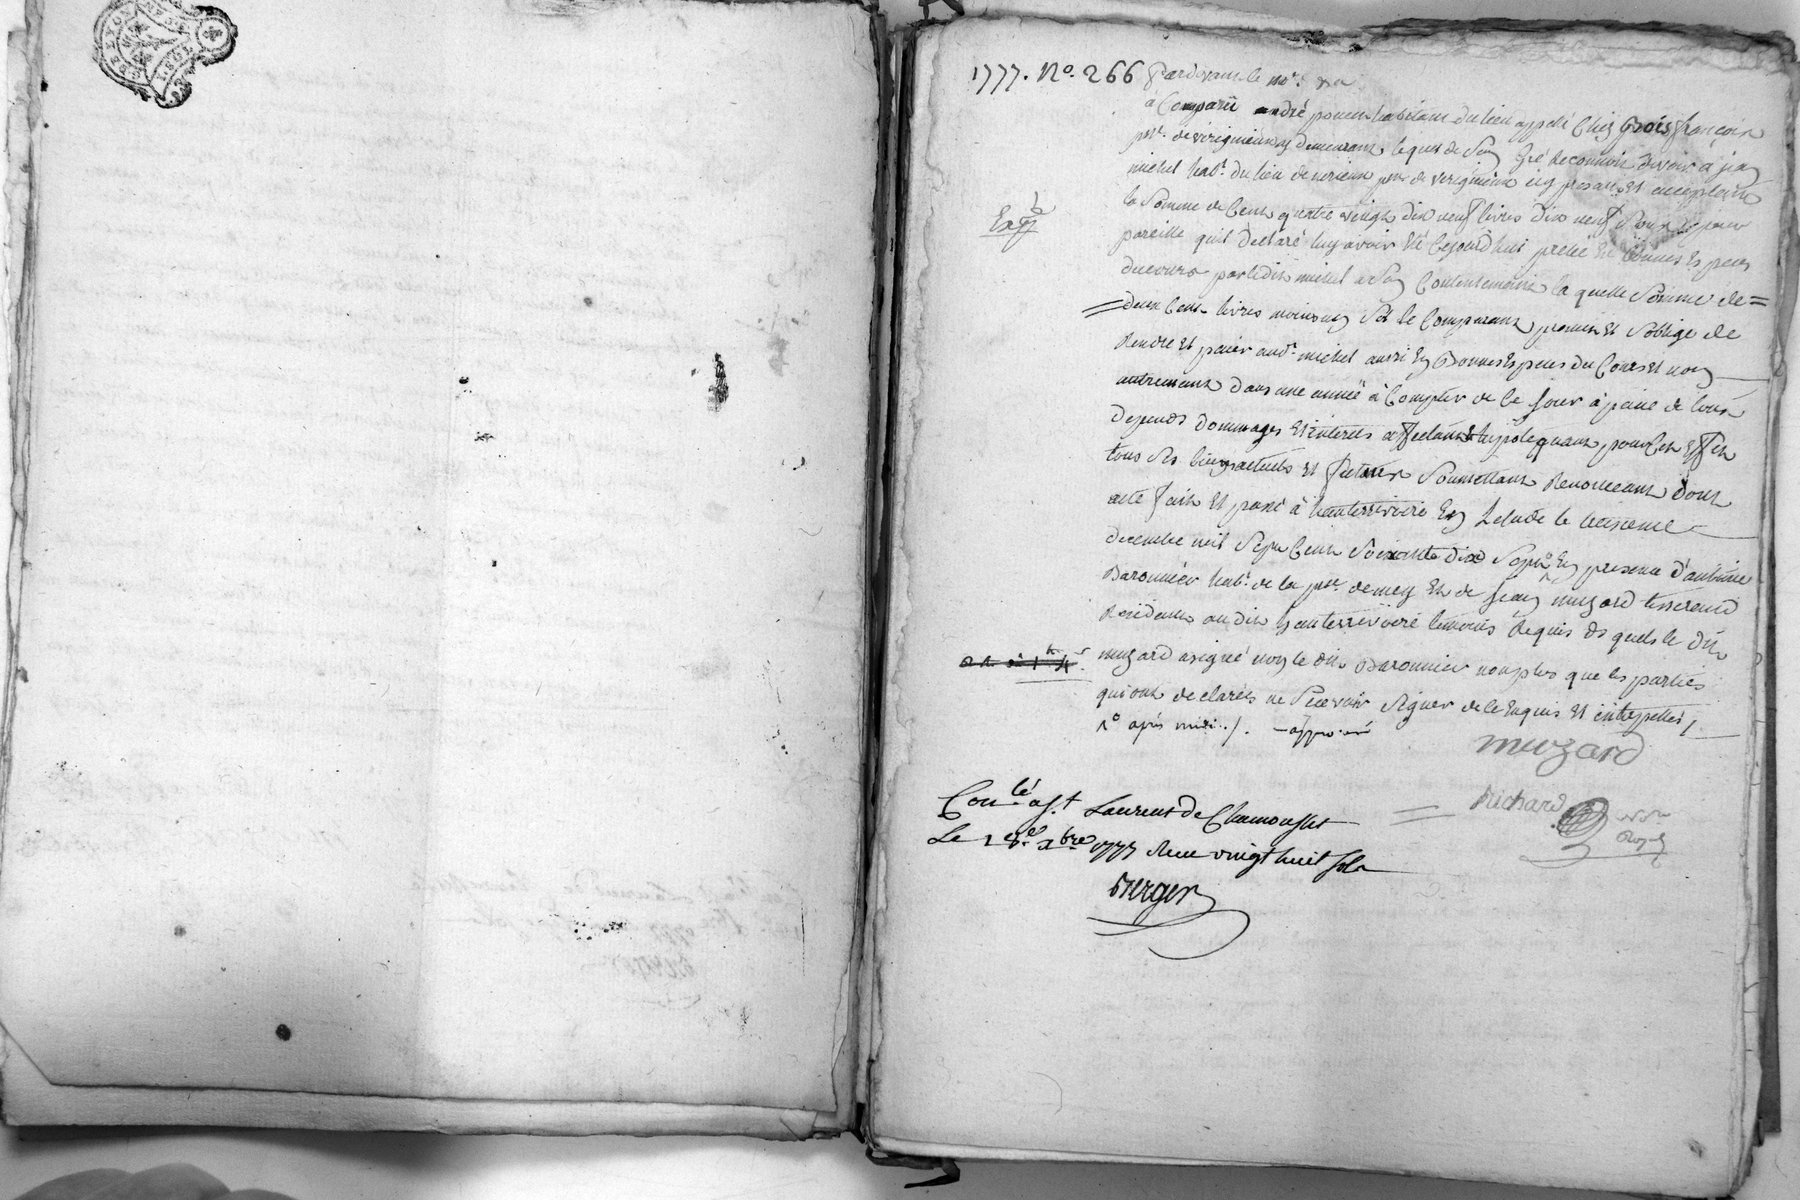 1777. No. 266 Pardevant le nore
a Comparû andré poncet habitant du lieu appelé Chez Grois françois
psse. de virigneux y demeurant lequel de Son Gré Reconnoit devoir a jean
michel habt. du lieu de psse de virigneux icy present et acceptant
la Somme de Cent quatre vingt dix neuf livres dix neuf Sous pour
pareille quil declare luy avoir Eté Cejourd'hui pretée En bonnes Especes
ducours par ledit michel a Son Contentement la quelle Somme de =
= deux Cent livres moins un Sol le Comparant promet et Soblige de
Rendre Et paier audt. michel aussi En Bonnes Especes du Cours et non
autrement dans une année à Compter de Ce jour à peine de tous
depends dommages Et interets affectant & hypotequant pour Cet Effet
tous Ses biens actuels et futurs Soumettant Renonceant dont
acte fait Et passé à hauterivoire En Letude le treizieme
decembre mil Sept Cent Soixante dix Sept En presence d'antoine
Baronnier habt. de la psse. demeys Et de jean muzard tisserand
Residant au dit hauterivoire temoins Requis Es quels le dit
muzard a signé non le dit Baronnier non plus que les parties
qui ont declarés ne Scavoir Signer de ce Enquis Et interpellés /
1o après midi ./. - approuvé
muzard
Richard
Royal
Conlé a St Laurent de Chamousset
Le 1777 Reçu vingt huit Sols
Berger